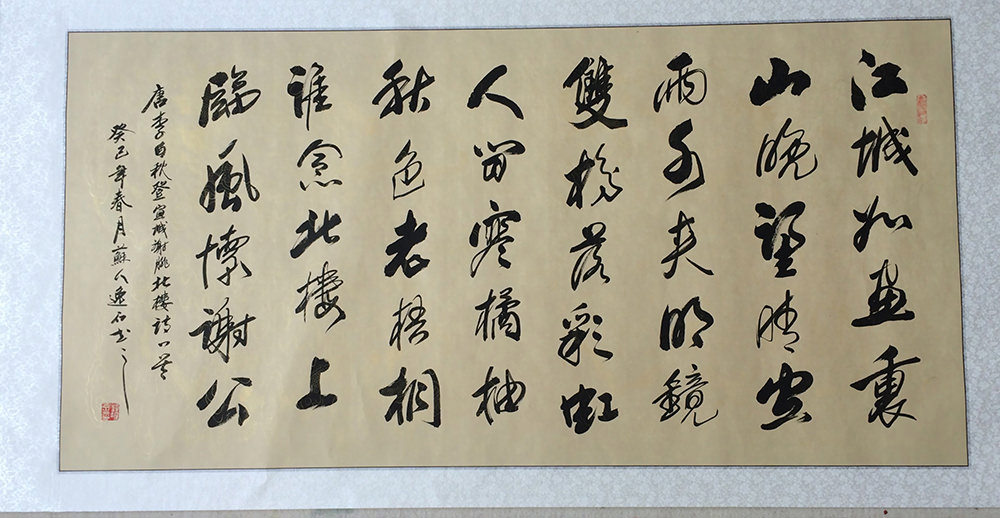 江城如畫裏
山晚望晴空
兩水夾明鏡
雙橋落彩虹
人寒橘柚
秋色老梧桐
誰念北樓上
臨風懷謝公
唐李白秋登宣城謝朓北樓詩一首
癸巳年春月蘇人逸石書之